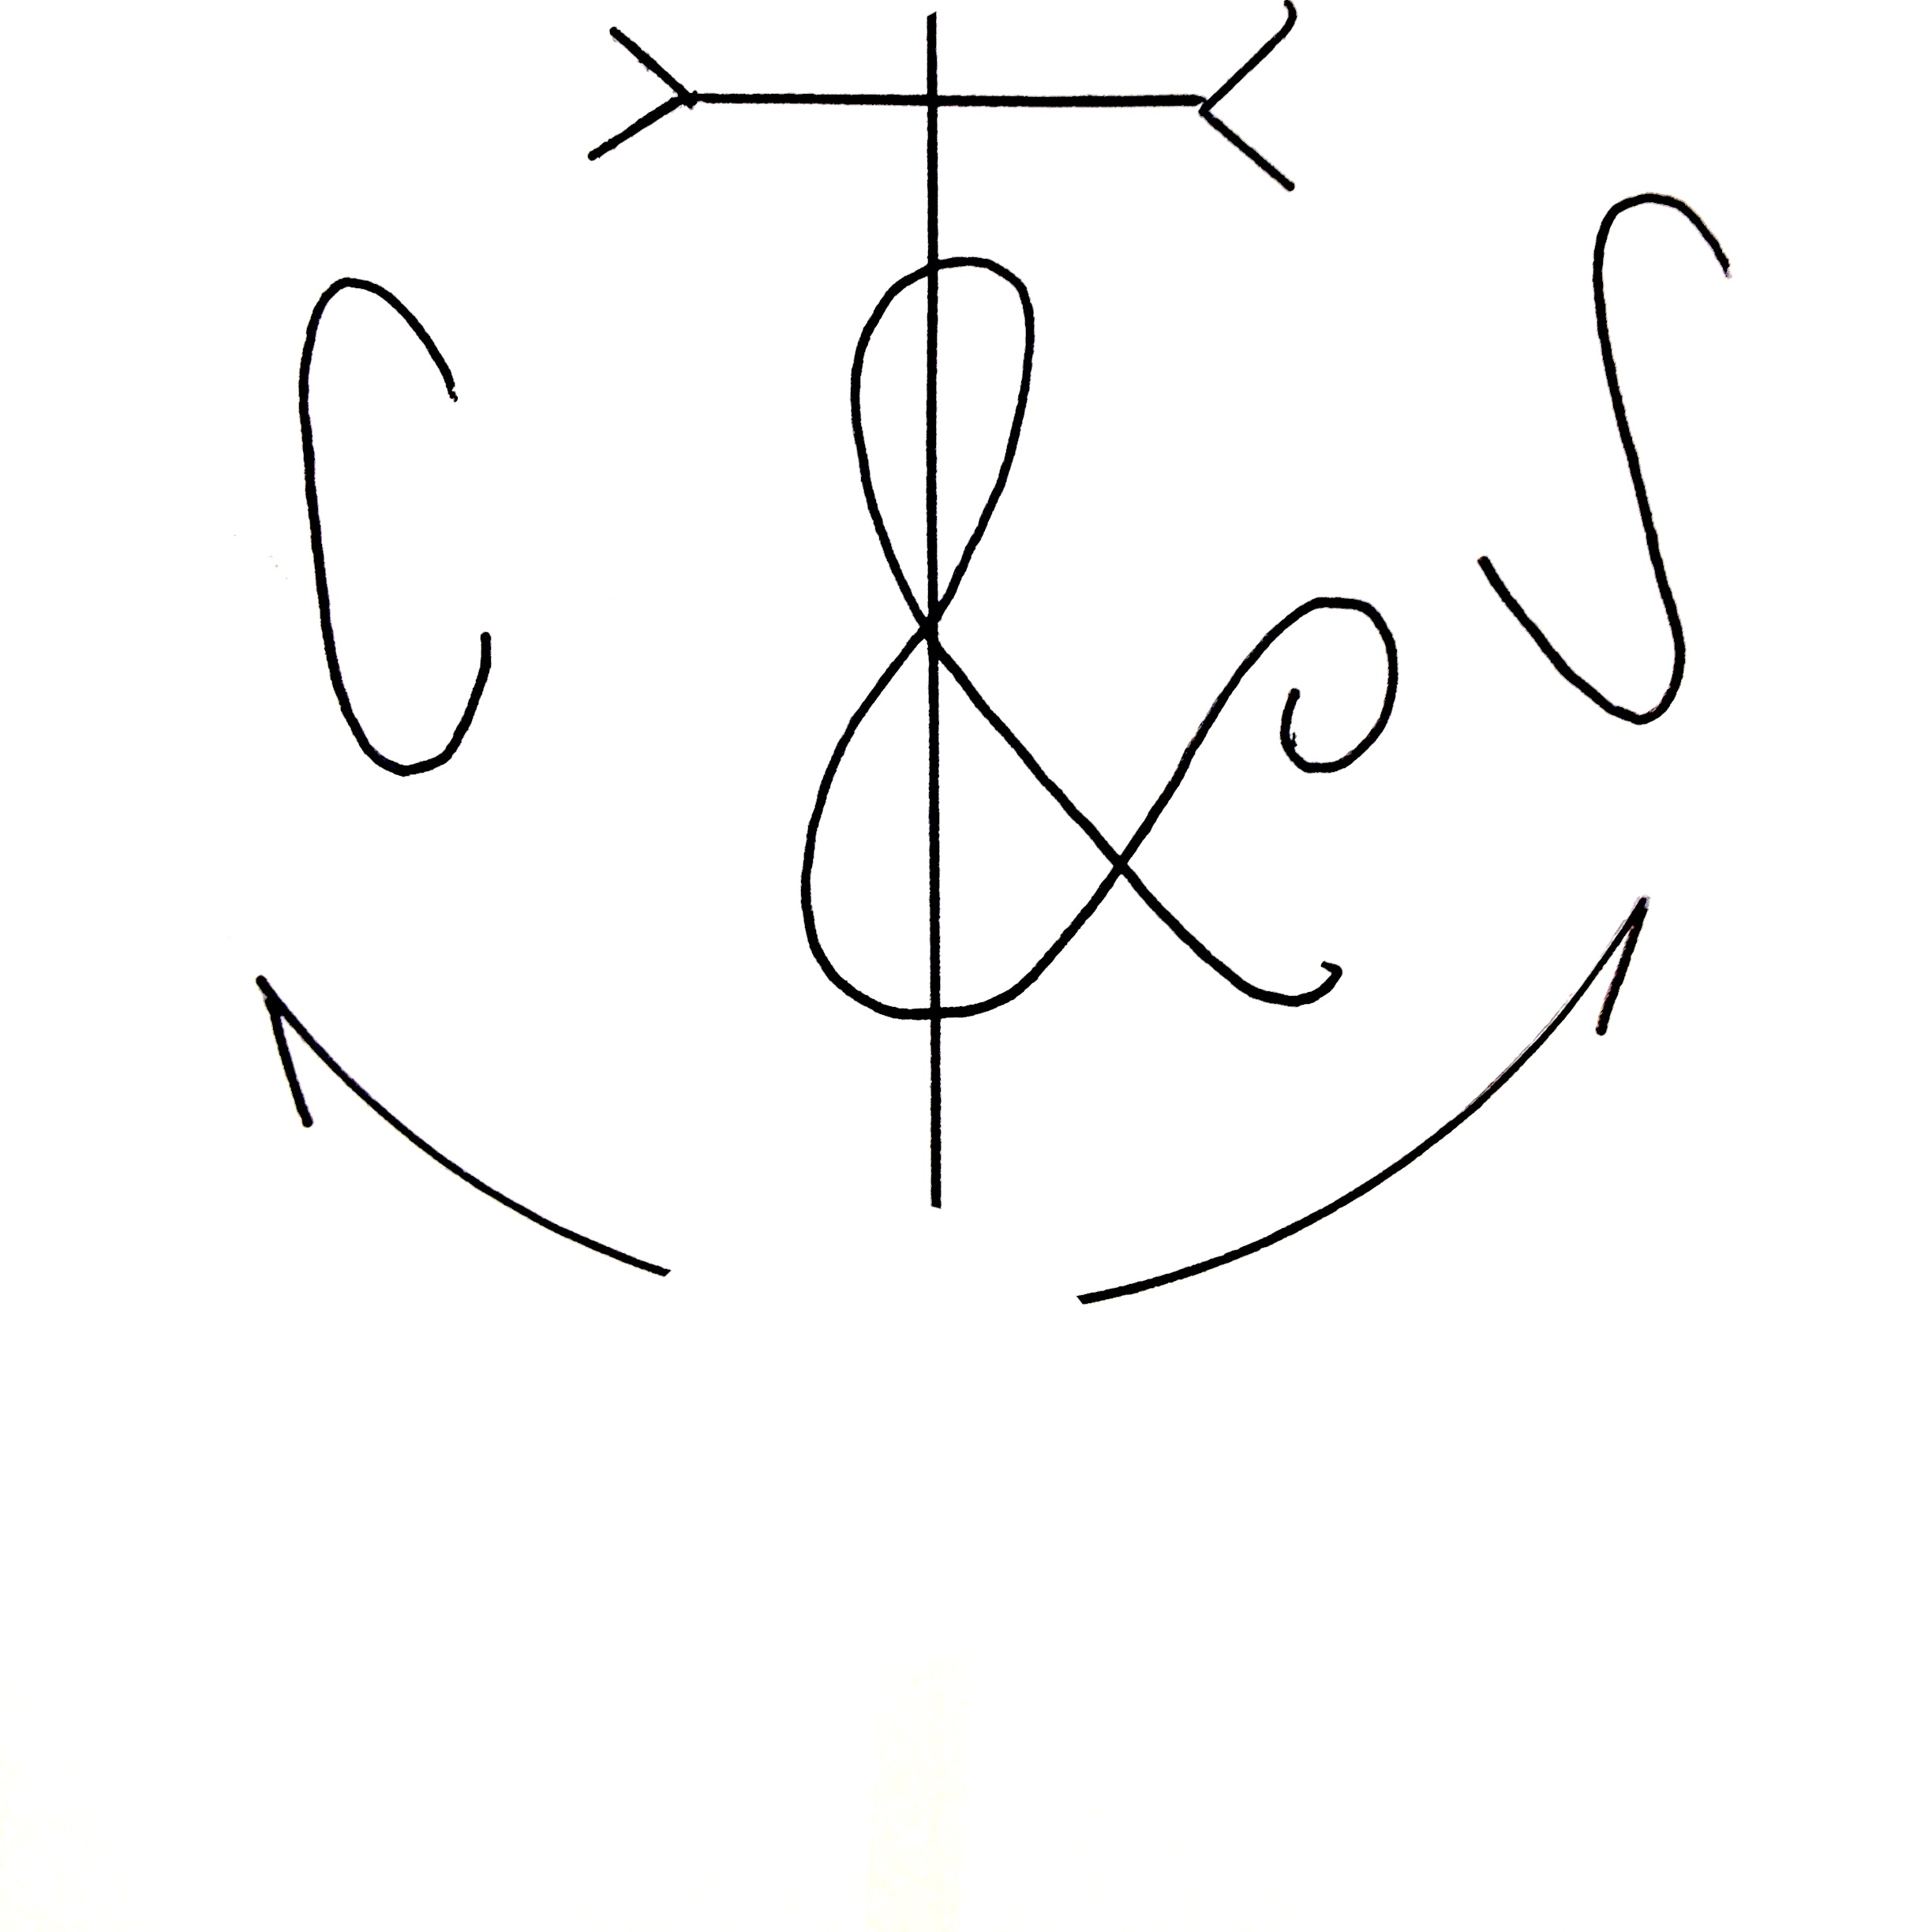 C & S